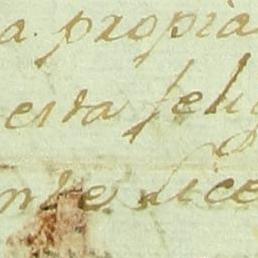 a propia
esta feli
ente lice